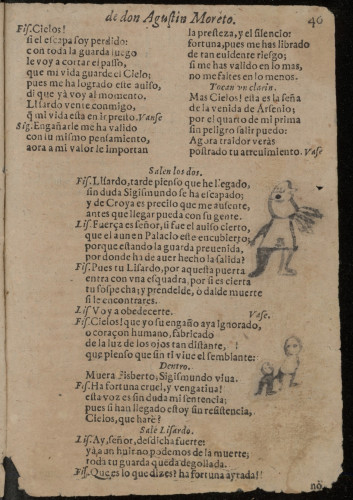 de don Agustin Moreto.
46
Fis. Cielos!
si el escapa soy perdido:
con toda la guarda luego
le voy a cortar el passo,
que mi vida guarde el Cielo;
pues me ha logrado este auiso,
di que yà voy al momento,
Lisardo vente conmigo,
q̃ mi vida està en ir presto. Vanse
Sig. Engañarle me ha valido
con su mismo pensamiento,
aora a mi valor le importan
la presteza, y el silencio:
fortuna, pues me has librado
de tan euidente riesgo;
si me has valido en lo mas,
no me faltes en lo menos.
Tocan vn clarin.
Mas Cielos! esta es la seña
de la venida de Arsenio;
por el quarto de mi prima
sin peligro salir puedo:
Agora traidor veràs
postrado tu atreuimiento. Vase
Salen los dos.
Fis. Lisardo, tarde pienso que he llegado,
sin duda Sigismundo se ha escapado;
y de Croya es preciso que me ausente,
antes que llegar pueda con su gente.
Lis. Fuerça es señor, si fue el auiso cierto,
que el aun en Palacio estè encubierto;
porque estando la guarda preuenida,
por donde ha de auer hecho la salida?
Fis. Pues tu Lisardo, por aquesta puerta
entra con vna esquadra, por si es cierta
tu sospecha; y prendelde, ò dalde muerte
si le encontrares.
Lis. Voy a obedecerte. Vase.
Fis. Cielos! que yo su engaño aya ignorado,
o coraçon humano, fabricado
de la luz de los ojos tan distante,
que pienso que sin ti viue el semblante:
Dentro.
Muera Fisberto, Sigismundo viua.
Fis. Ha fortuna cruel, y vengatiua!
esta voz es sin duda mi sentencia;
pues si han llegado estoy sin resistencia,
Cielos, que harè?
Sale Lisardo.
Lis. Ay, señor, desdicha fuerte:
yà, aun huir no podemos de la muerte;
toda tu guarda queda degollada.
Fis. Que es lo que dizes? ha fortuna ayrada!!
no